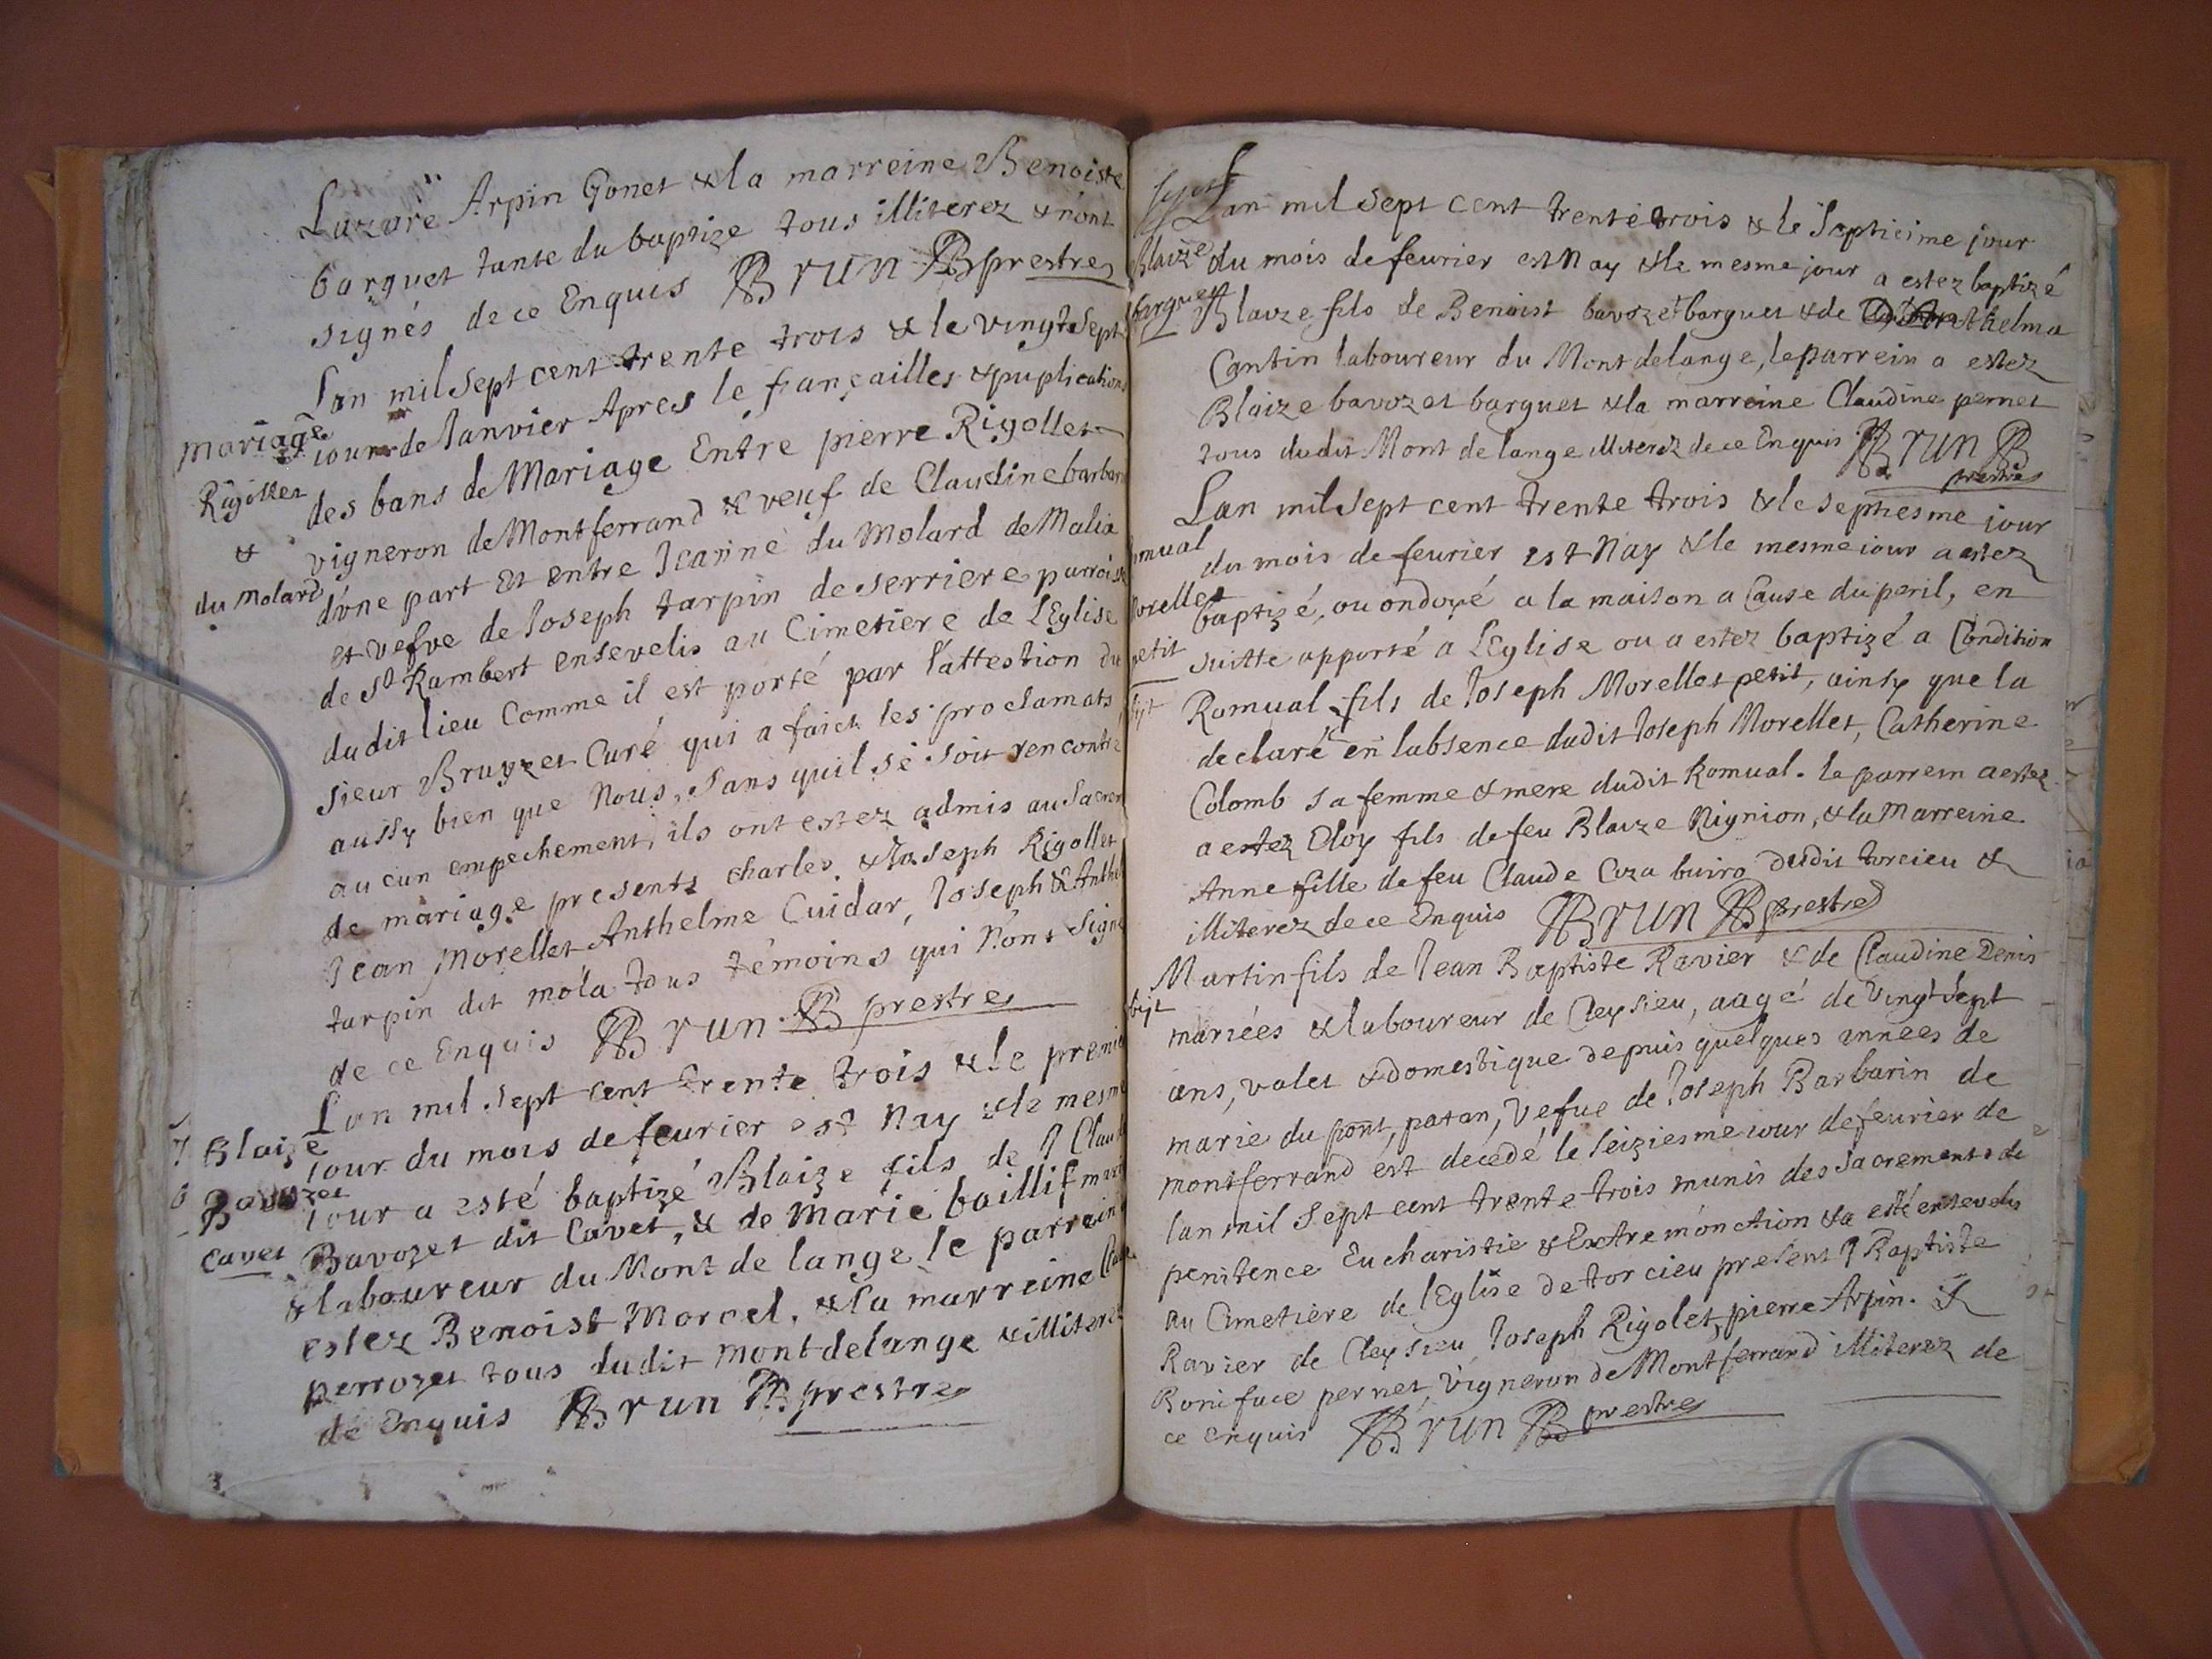 Lazare Arpin Gonet & la marreine Benoiste
barquet tante du baptize tous illiterez & n'ont
signés de ce Enquis Brun prestre
Lan mil Sept cent trente trois & le vingt Sept
mariage
jour de Janvier Apres le françailles & puplications
des bans de Mariage Entre pierre Rigollet
Rigollet
&
du Molard
vigneron de Montferrand & veuf de Claudine barbari
d'vne part Et entre Jeanne du Molard de Malia
et vefve de Joseph tarpin de serriere parroisse
de St Rambert ensevelis au Cimetiere de LEglise
dudit lieu Comme il est porté par l'attestion du
sieur Bruyzet Curé qui a faict les proclamats
aussy bien que Nous, Sans quil se soit rencontré
aucun empechement, ils ont estez admis au Sacrem
de mariage presents charles & Joseph Rigollet
Jean Morellet Anthelme Cuidar, Joseph & Anthel
tarpin dit mola tous témoins qui N'ont signé
de ce Enquis Brun prestre
Lan mil Sept cent trente trois & le premie
Blaize
Bavozet
Cavet
jour du mois de feurier est Nay & le mesme
jour a esté baptizé Blaize fils de J Claude
Bavozet dit Cavet, & de Marie baillif mari
& laboureur du Mont de lange le parrein
estez Benoist Morcel, & la marreine
perrozet tous dudit montdelange & illiterez
de Enquis Brun prestre
Lan mil Sept cent trente trois & le Septieime jour
Blaize
barquet
du mois de feurier est Nay & le mesme jour a estez baptizé
Blaize fils de Benoist bavozet barquet & de Anthelma
Cantin laboureur du Mont delange, le parrein a estez
Blaize bavozet barquet & la marreine Claudine pernet
tous dudit Mont de lange illiterez de ce Enquis Brun
prestre
Lan mil Sept cent trente trois & le septiesme jour
omual
Morellet
petit
du mois de feurier est Nay & le mesme iour a estez
baptizé, ou ondoyé a la maison a Cause du peril, en
suitte apporté a LEglise ou a estez baptizé a Condition
Romual fils de Joseph Morellet petit, ainsy que la
declaré en labsence dudit Joseph Morellet, Catherine
Colomb sa femme & mere dudit Romual. le parrein a estez
a estez Eloy fils de feu Blaize Nignion, & la Marreine
Anne fille de feu Claude Coza buiro dudit torcieu &
illiterez de ce Enquis Brun prestre
Martin fils de Jean Baptiste Ravier & de Claudine Denis
mariées & laboureur de Cleysieu, aagé de Vingt Sept
ans, valet & domestique depuis quelques années de
marie du pont, patan, Vefue de Joseph Barbarin de
montferrand est decedé le Seiziesme iour de feurier de
lan mil Sept cent trente trois munis des Sacrements de
penitence Eucharistie & Extremonction & a esté ensevelis
au Cimetiere de l'Eglise de torcieu present J Baptiste
Ravier de Cleysieu Joseph Rigolet, pierre Arpin. &
Boniface pernet, Vigneron de Montferrand illiterez de
ce Enquis Brun prestre